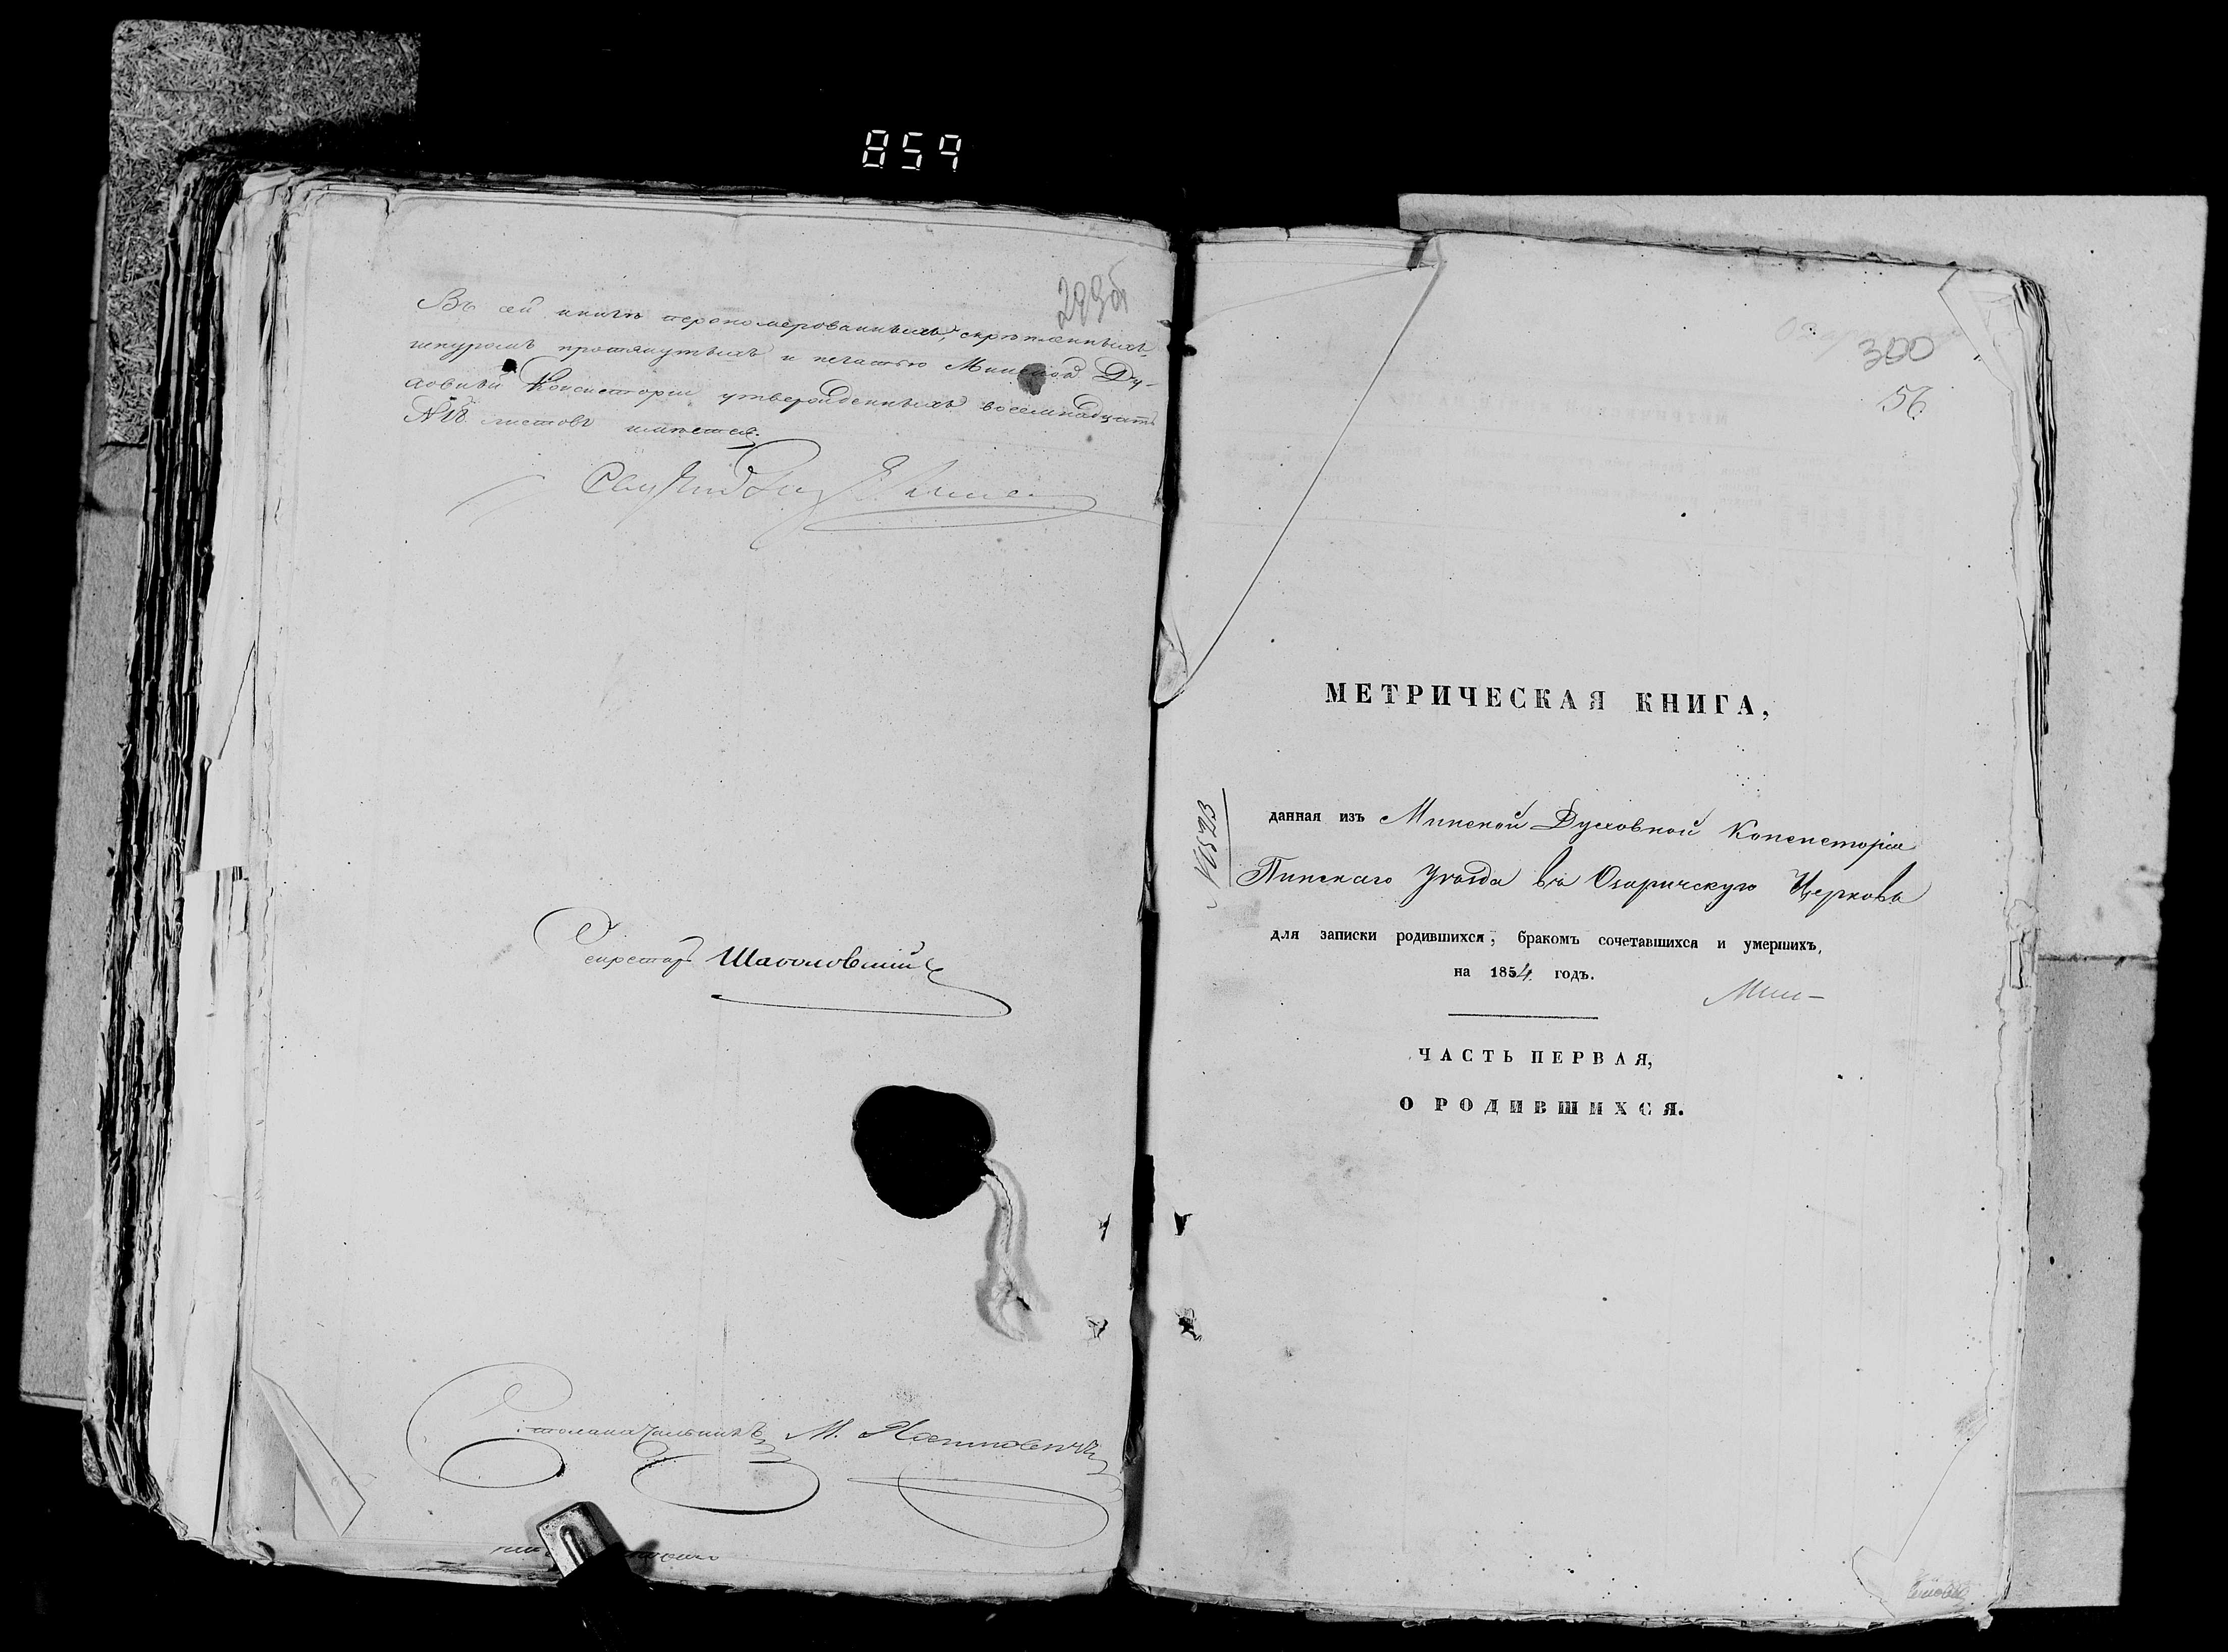 859
Въ сей книгѣ перенумерованныхъ, скрѣпленныхъ,
шнуромъ протянутыхъ и печатью Минской Ду-
ховной Консисторіи утвержденныхъ восемнадцать
№ 18. листовъ имѣется.
Секретарь
Столоначальникъ М.
300
56
МЕТРИЧЕСКАЯ КНИГА,
№ 1523
данная изъ Минской Духовной Консисторіи
Пинскаго Уѣзда въ Озаричскую Церковь
для записки родившихся, бракомъ сочетавшихся и умершихъ,
на 1854 годъ.
ЧАСТЬ ПЕРВАЯ,
О РОДИВШИХСЯ.